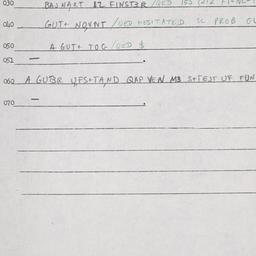 030 BAJHART AZ FINSTER /UED
040 GUT+ NOYNT /UED HESITATED SC PROB
050 A GUT+ TOG /UED $
051 —.
060 A GUBR UFS+TAND QAP VEN MB S+TEJT UF FUN
070 —.